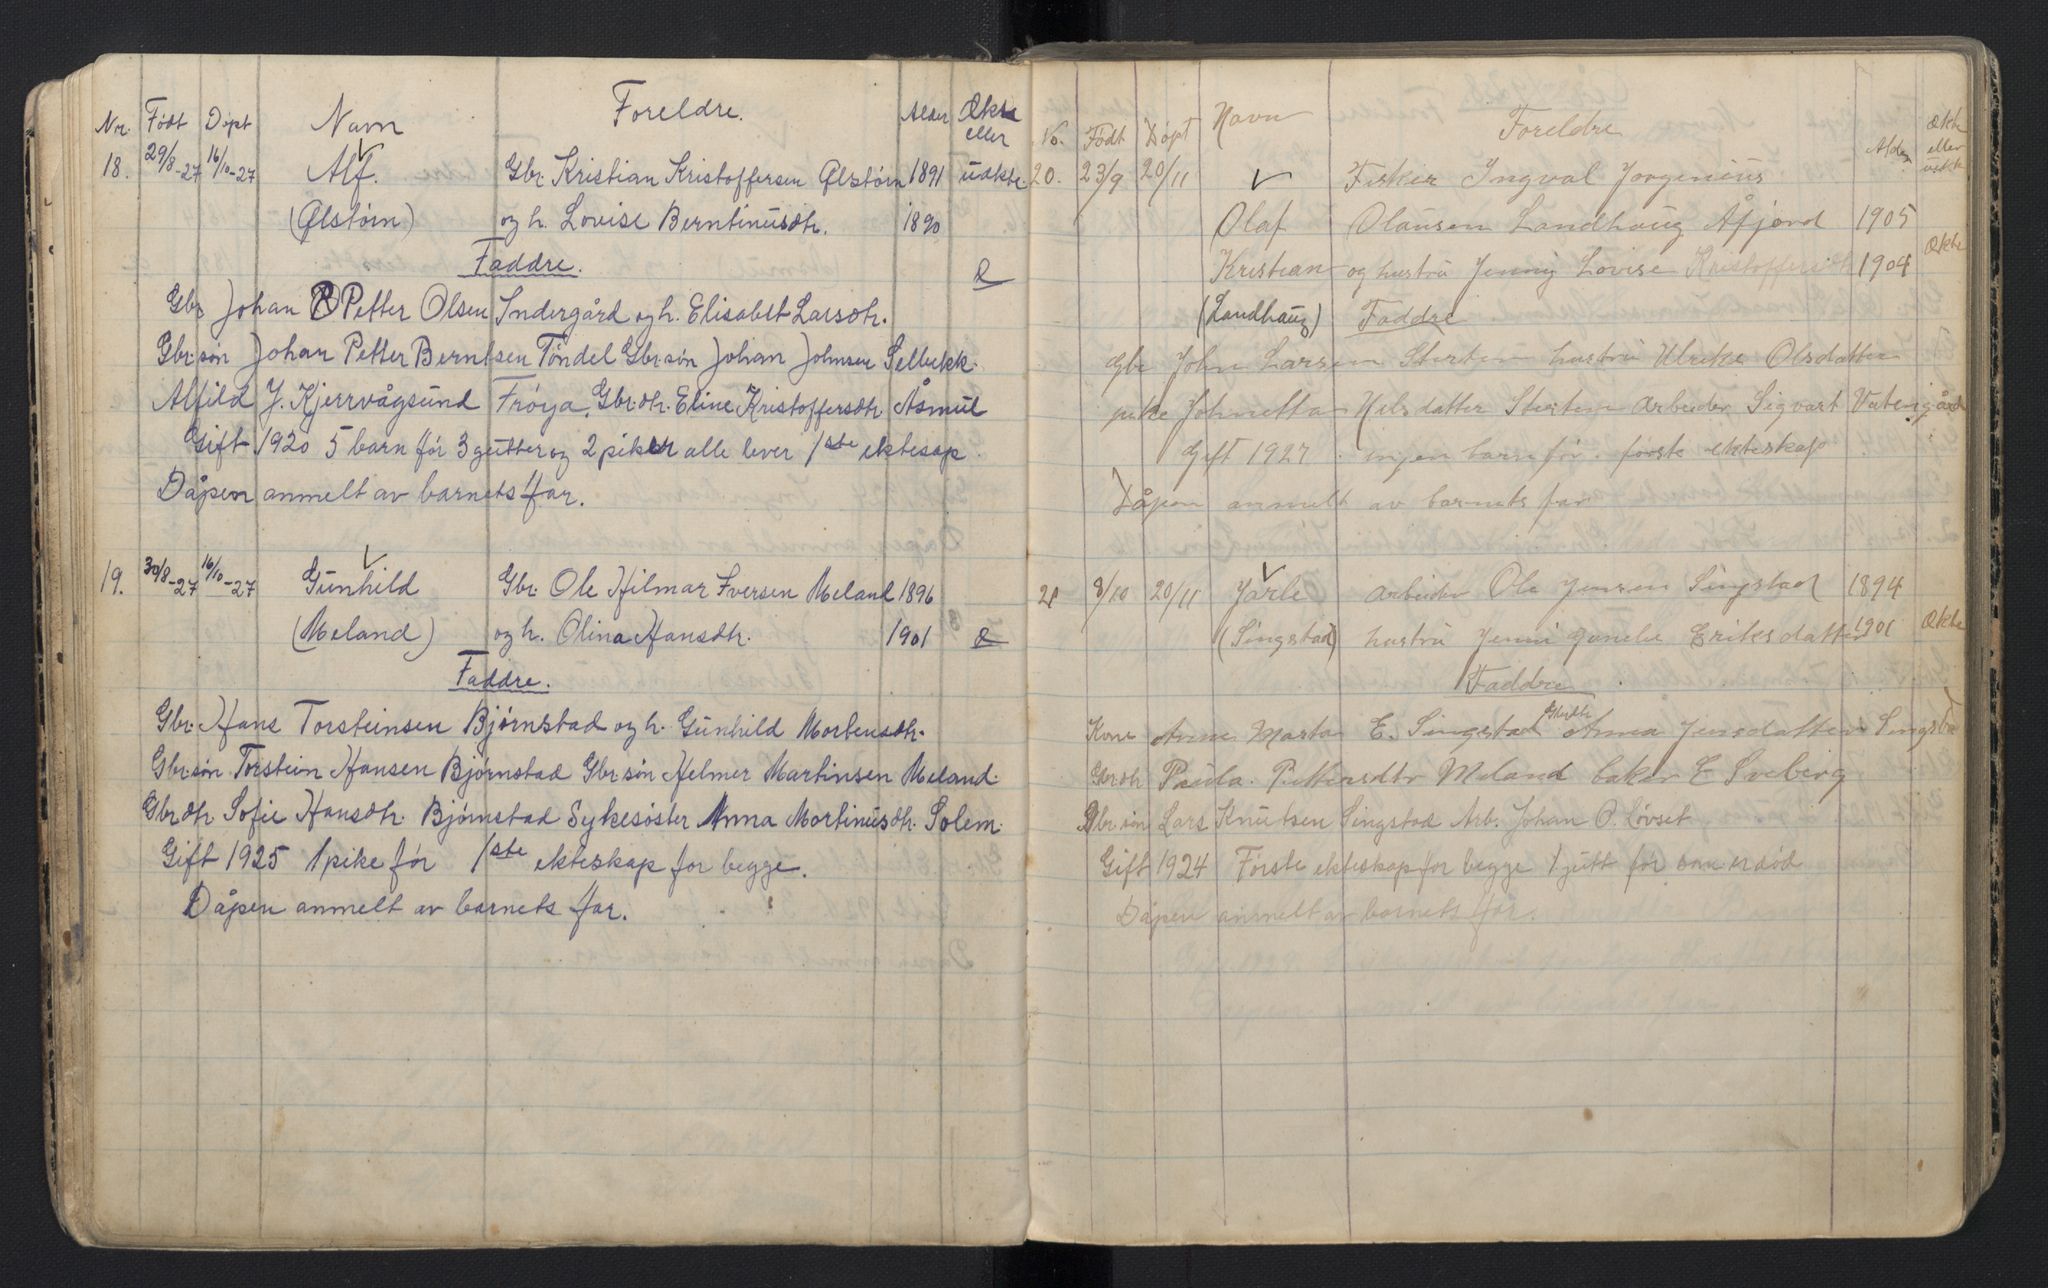 Nr. Født Døpt Navn Foreldre. Alder Ækte eller uækte.
18. 29/8-27 16/10-27 Alf. Gbr. Kristian Kristoffersen Ølstørn 1891
(Ølstørn) og h. Lovise Berntinusdtr. 1890
Faddre. Æ
Gbr Johan Petter Olsen Indergård og h. Elisabet Larsdtr.
Gbr.søn Johan Petter Berntsen Tøndel Gbr.søn Johan Johnsen Selbekk.
Alfild J. Kjerrvågsund Frøya. Gbr.dtr. Eline Kristoffersdtr. Åsmul
Gift 1920 5 barn før 3 gutter og 2 piker alle lever 1ste ektesap.
Dåpen anmelt av barnets far.
19. 30/8-27 16/10-27 Gunhild Gbr. Ole Hilmar Iversen Meland 1896
(Meland) og h. Olina Hansdtr. 1901 Æ
Faddre.
Gbr. Hans Torsteinsen Bjørnstad og h. Gunhild Mortensdtr.
Gbr.søn Torstein Hansen Bjørnstad Gbr.søn Helmer Martinsen Meland.
Gbrdtr Sofie Hansdtr. Bjørnstad Sykesøster Anna Mortinusdtr. Solem.
Gift 1925 1 pike før 1ste ekteskap for begge.
Dåpen anmelt av barnets far.
No. Født Døpt Navn Foreldre Alder Ækte eller uekte
20. 23/9 20/11 Fisker Ingval Jørgenius
Olaf Olausen Landhaug Åfjord 1905
Kristian og hustru Jenny Lovise Kristoffersdt 1904 Ækte
(Landhaug) Faddre
Gbr John Larsen Sterten hustru Ulrike Olsdatter
pike Johnetta Nilsdatter Sterten Arbeider Sigvart Vatengård
Gift 1927 ingen barn før. første ekteskap
Dåpen anmelt av barnets far
21 8/10 20/11 Jarle Arbeider Ole Jensen Singstad 1894
(Singstad) hustru Jenni Eriksdatter 1901 Ækte
Faddre
Kone Anne Marta E. Singstad Gbrdtr Anna Jensdatter Singstad
Gbr.dtr Paula Pettersdtr Meland baker E Sveberg
Gbr.søn Lars Knutsen Singstad Arb. Johan O. Løvset
Gift 1924 Første ekteskap for begge 1 gutt før som er død
Dåpen anmelt av barnets far.